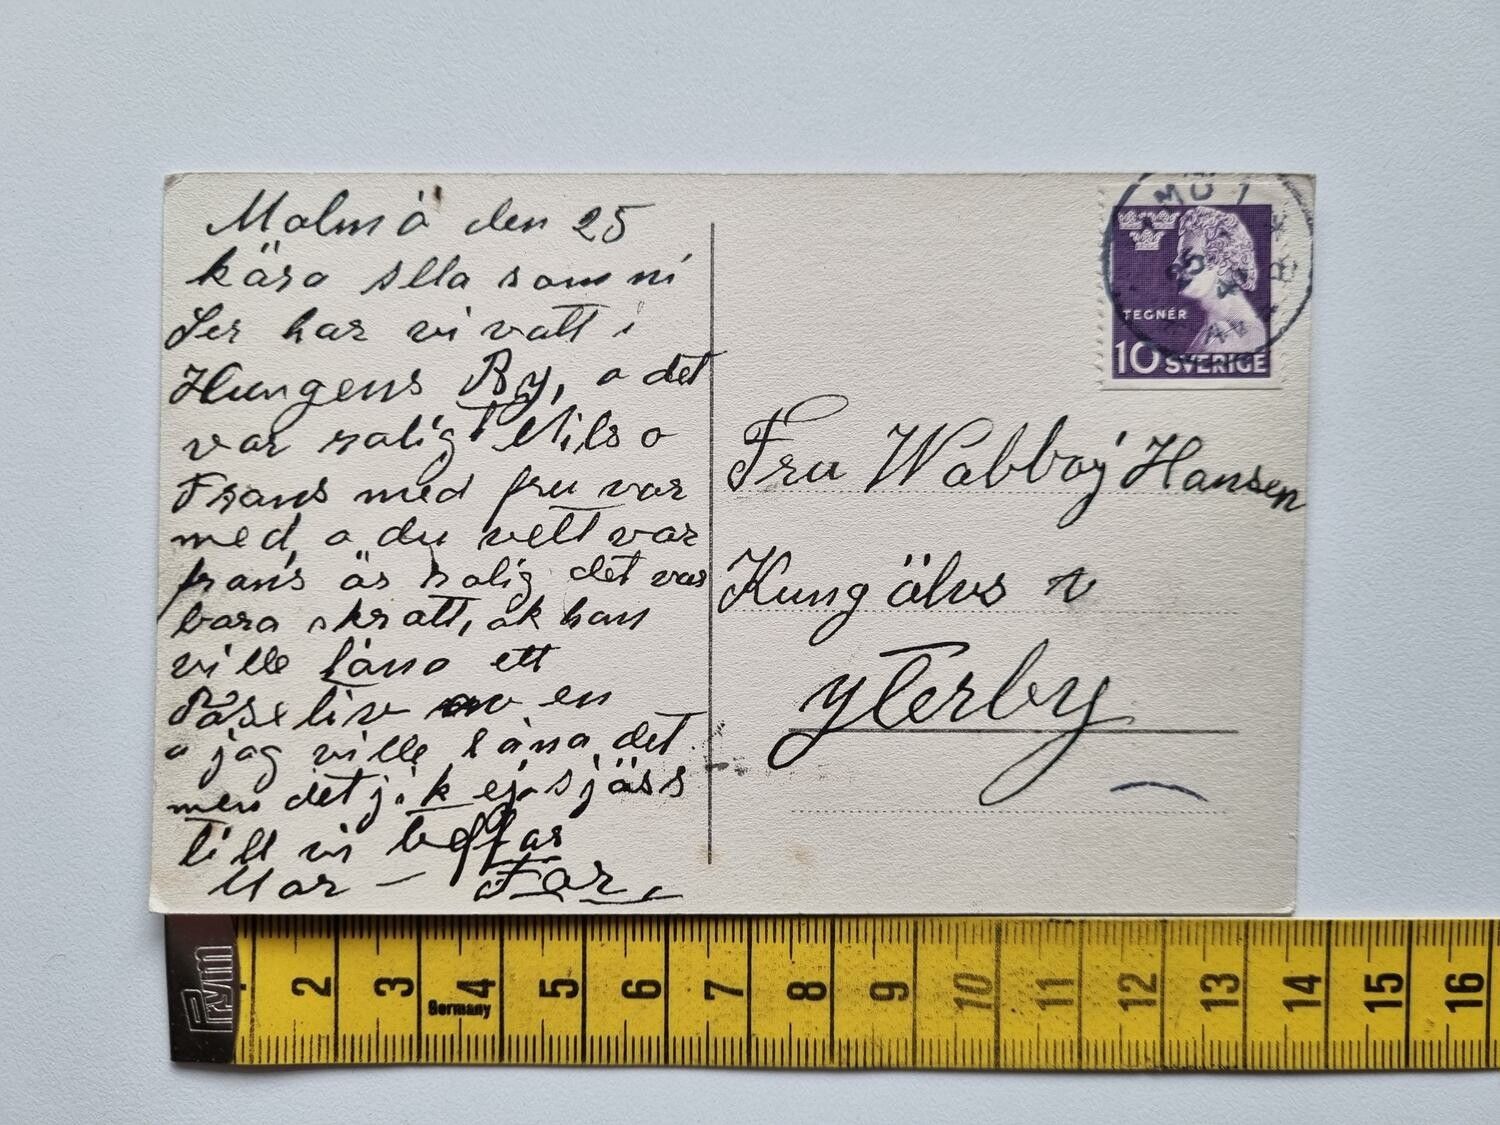 Malmö den 25
kära Alla som ni
Ser har vi vatt i
Hungens By, o det
var rolig Nils o
Frans med fru var
med, o du vett var
frans är rolig det var
bara skratt, åk han
ville låna ett
liv en
o jag ville låna det
men det jik ej sjäss
till vi
Mor — Far
TEGNÉR
10 SVERIGE
Fru Wabboy Hansen
Kungälvs v
Ytterby
Prym
2 3 4 5 6 7 8 9 10 11 12 13 14 15 16
Germany